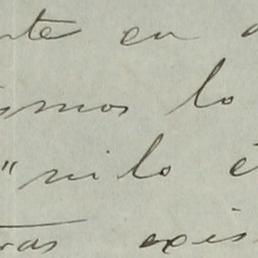 nte en a
ismos lo
"ni lo é
ras exis